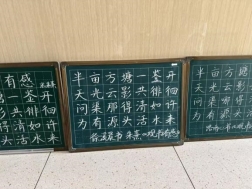 有感
鉴开
共徘徊
清如许
活水来
半亩方塘一鉴开
天光云影共徘徊
问渠那得清如许
为有源头活水来
半亩方塘
天光云影
问渠那得
为有源头